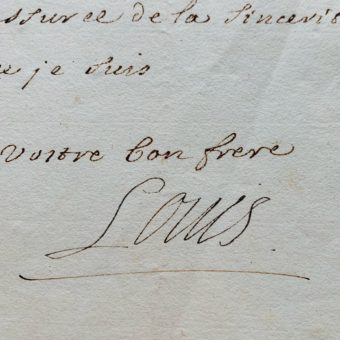 ssuree de la sincerit
e je suis
Vostre bon frere
Louis.